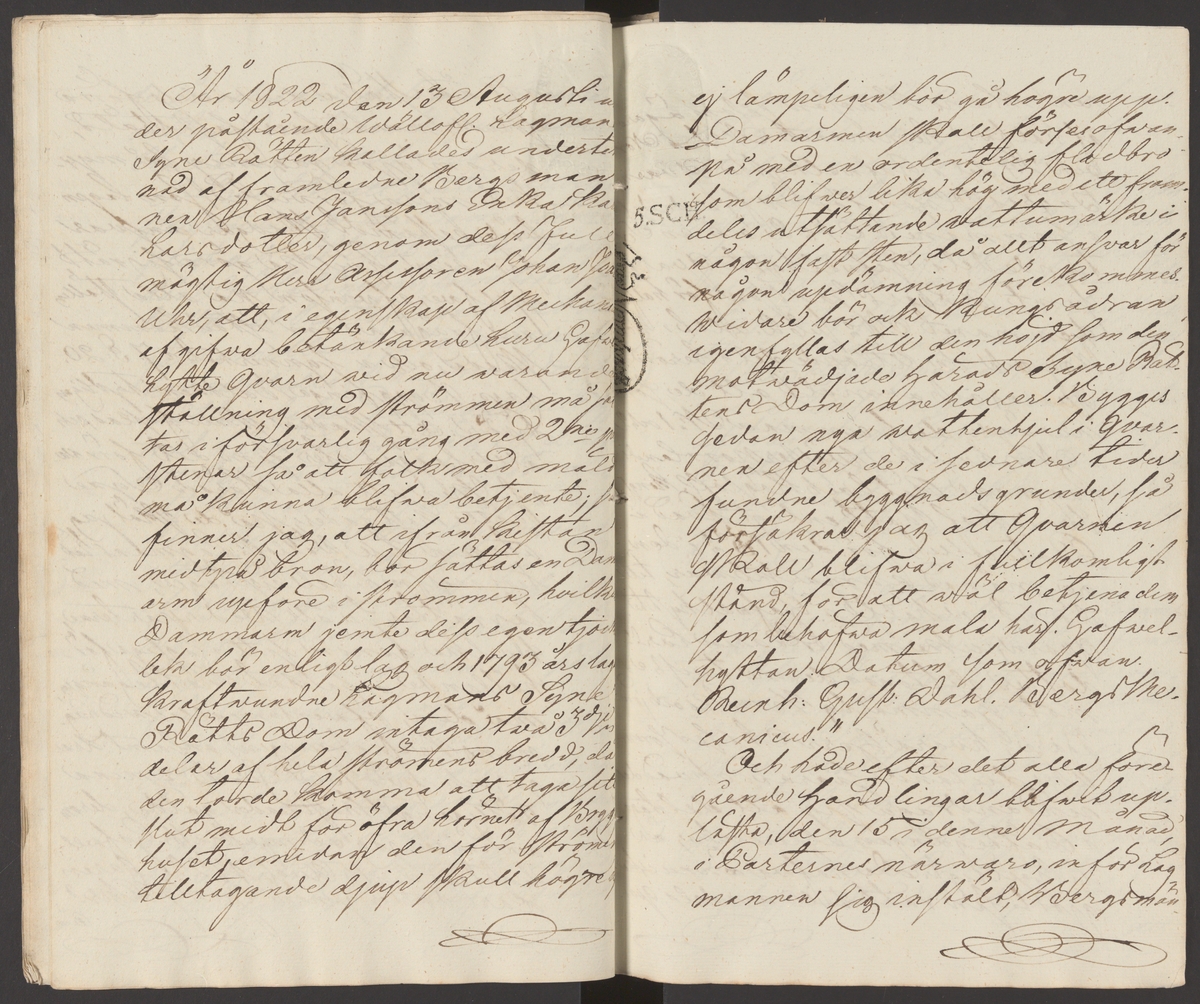 År 1822 den 13 Augusti u
der påstående Wällofl. Lagman
Syne Rätten kallades underte
nad af framledne Bergsman
nen Hans Janssons Enka
hars dotter, genom dess Full
mägtig Herr Assessoren Johan
Uhr, att, i egenskap af Mechan
afgifwa betänkande huru Gafw
hytte Qvarn wid nu warande
ställning med strömmen må
tas i försvarlig gång med 2
stenar så att folk med mäld
må kunna blifwa betjente; så
finner jag, att ifrån kistan
midtpå bron, bör sättas en Dam
arm upföre i strömmen, hvilken
Dammarm jemte dess egen tjock
lek bör enligt lag och 1793 års laga
kraftwundne Lagmans Syne
Rätts Dom intaga twå 3dje
delar af hela strömens bredd, då
den torde komma att taga sitt
slut midt för öfra hörnet af Brygg
huset, emedan den för strömens
tilltagande djup skull högre
ej lämpeligen bör gå högre upp.
Damarmen skall förses ofwan-
på med en ordentelig flodbro
som blifwer lika hög med ett fram-
deles utsättande wattumärke i
någon fast sten, då allt ansvar för
någon updämning förekommes.
Widare bör och Kungsådran
igenfyllas till den höjd som den
motwädjade Härads Syne Rät-
tens Dom innehåller. Bygges
sedan nya wattenhjul i Qvar-
nen efter de i sednare tider
fundne byggnadsgrunder, så
försäkrar jag att Qvarnen
skall blifwa i fullkomligt
stånd, för att wäl betjena dem
som behöfwa mala här. Gafwel-
hyttan Datum som ofwan.
Reinh: Gust: Dahl. Bergs Me-
canicus."
Och hade efter det alla före-
gående Handlingar blifwit up-
lästa, den 15 i denne Månad,
i Parternes närwaro, inför Lag-
mannen sig instält, Bergsmän-
5.SCH.